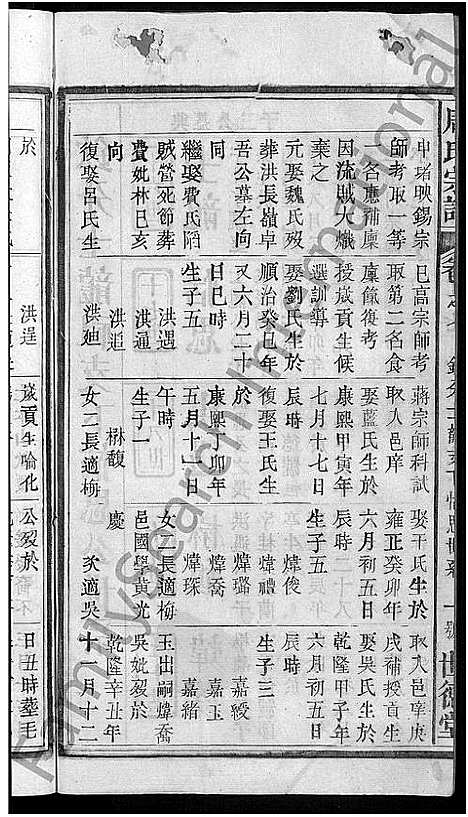 周氏宗譜
世德堂
申堵映錫宗
師考取一等
一名應補廩
因流賊大熾
棄之
元娶魏氏歿
葬洪長嶺卓
吾公墓左向
繼娶費氏陷
賊營死節葬
費妣林巳亥
向
復娶呂氏生
於
巳高宗師考
取第二名食
廩餼復
授歲貢生候
選訓導
娶劉氏生於
順治
又六月二十
日巳時
生子五
洪遇
洪通
洪逅
洪廸
洪逞
蔣宗師科試
取入邑庠
娶藍氏生於
康熙甲寅年
七月十七日
辰時
復娶王氏生
於
康熙丁卯年
五月十一日
午時
生子一
楙馥
女二長適梅
歲貢生喻化
娶干氏生於
雍正癸卯年
六月初五日
辰時
生子五
煒俊
煒禮
煒璐
煒喬
煒琛
女二長適梅
邑國學黃光
慶
次適吳
公歿於
取入邑庠庚
戌補授首生
娶吳氏生於
乾隆甲子年
六月初五日
生子三
嘉綬
嘉玉
嘉緒
玉出嗣煒喬
吳妣歿於
乾隆辛丑年
十一月十二
日丑時塟毛
FamilySearch International